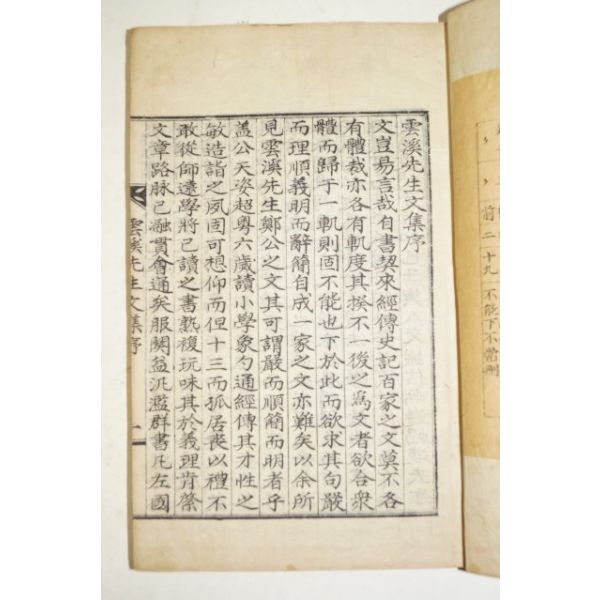 雲溪先生文集序
文豈易言哉自書契來經傳史記百家之文莫不各
有體裁亦各有軌度其揆不一後之爲文者欲合衆
體而歸于一軌則固不能也下於此而欲求其句嚴
而理順義明而辭簡自成一家之文亦難矣以余所
見雲溪先生鄭公之文其可謂嚴而順簡而明者乎
盖公天姿超粤六歲讀小學象勺通經傳其才性之
敏造詣之夙固可想仰而但十三而孤居喪以禮不
敢從師遠學將已讀之書熟復玩味其於義理肯綮
文章路脉已融貫會通矣服闋益汎濫群書凡左國
雲溪先生文集序
一
前二十九
不能下不常刪